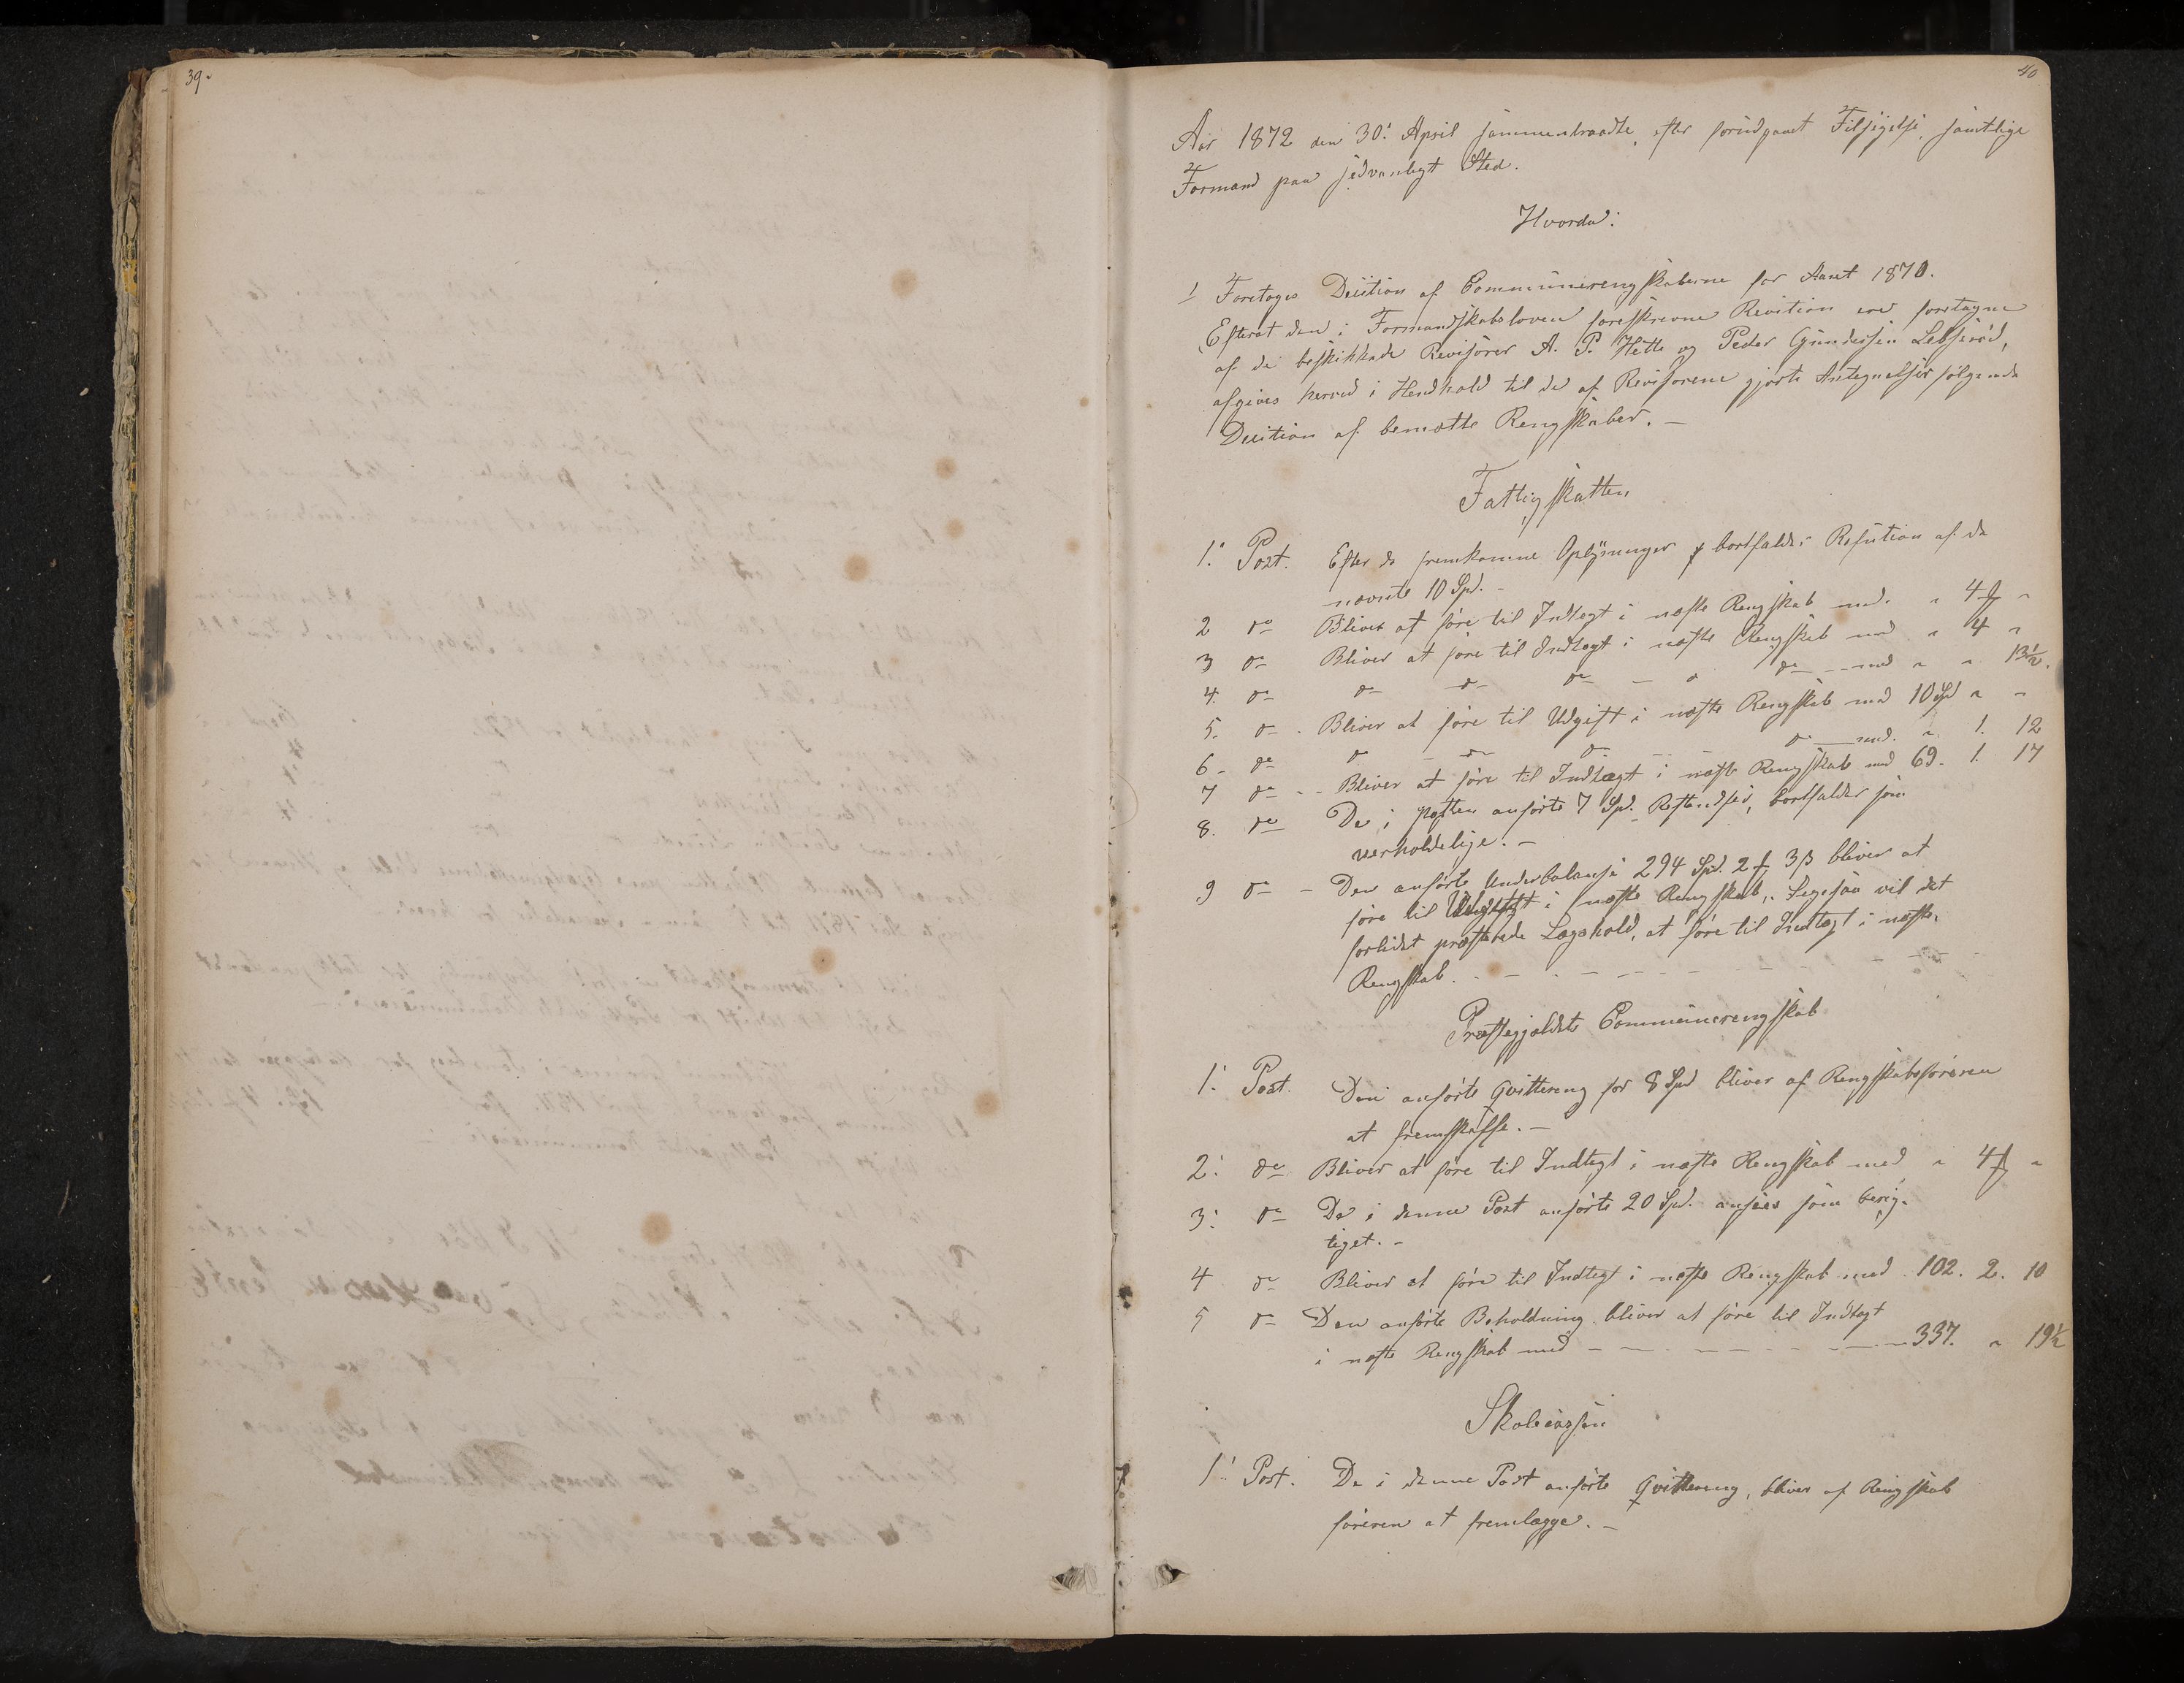 39.
40
Aar 1872 den 30: April sammentraadte, efter forudgaaet Tilsigelse, samtlige
Formænd paa sedvanligt Sted.
Hvorda:
1 Foretoges Desition af Communerengskaberne for Aaret 1870.
Efterat den i Formandskabsloven foreskrevne Revition er foretagne
af de beskikkede Revisorer A. P. Hette og Peder Gundersen
afgives herved i Henhold til de af Revisorene gjorte Antegnelser følgende
Desition af bemældte Rengskaber. —
Fattigskatten
1: Post. Efter de fremkomne Oplysninger bortfalder Refution af de
nævnte 10 Spd. -
2 do Bliver at føre til Indtegt i næste Rengskab med. " 4 "
3 do Bliver at føre til Indtegt i næste Rengskab med " 4 "
4. do do do do — do — med " " 13½.
5. do - Bliver at føre til Udgift i næste Rengskab med 10 Spd " "
6 - do do do do do — med. " 1. 12
7 do - - Bliver at føre til Indtægt i næste Rengskab med 69. 1. 17
8. do De i posten anførte 7 Spd. Restandser, bortfalder som
uerholdelige. —
9 do - Den anførte Underbalanse 294 Spd. 2 3 β bliver at
føre til i næste Rengskab,. Ligesaa vil det
forlidet præsterede Lægshold, at føre til Indtægt i næste
Rengskab.
Præstegjældets Communerengskab
1: Post. Den anførte Qvittereng for 8 Spd bliver af Rengskabsføreren
at fremskaffe. —
2: do Bliver at føre til Indtegt i næste Rengskab med " 4 "
3: do De i denne Post anførte 20 Spd. ansees som berig-
tiget. -
4 do Bliver at føre til Indtegt i næste Rengskab med 102. 2. 10
5 do Den anførte Beholdning bliver at føre til Indtegt
i næste Rengskab med — 337. " 19½
Skolecassen
1: Post. De i denne Post anførte Qvittereng, bliver af Rengskab
føreren at fremlægge. —